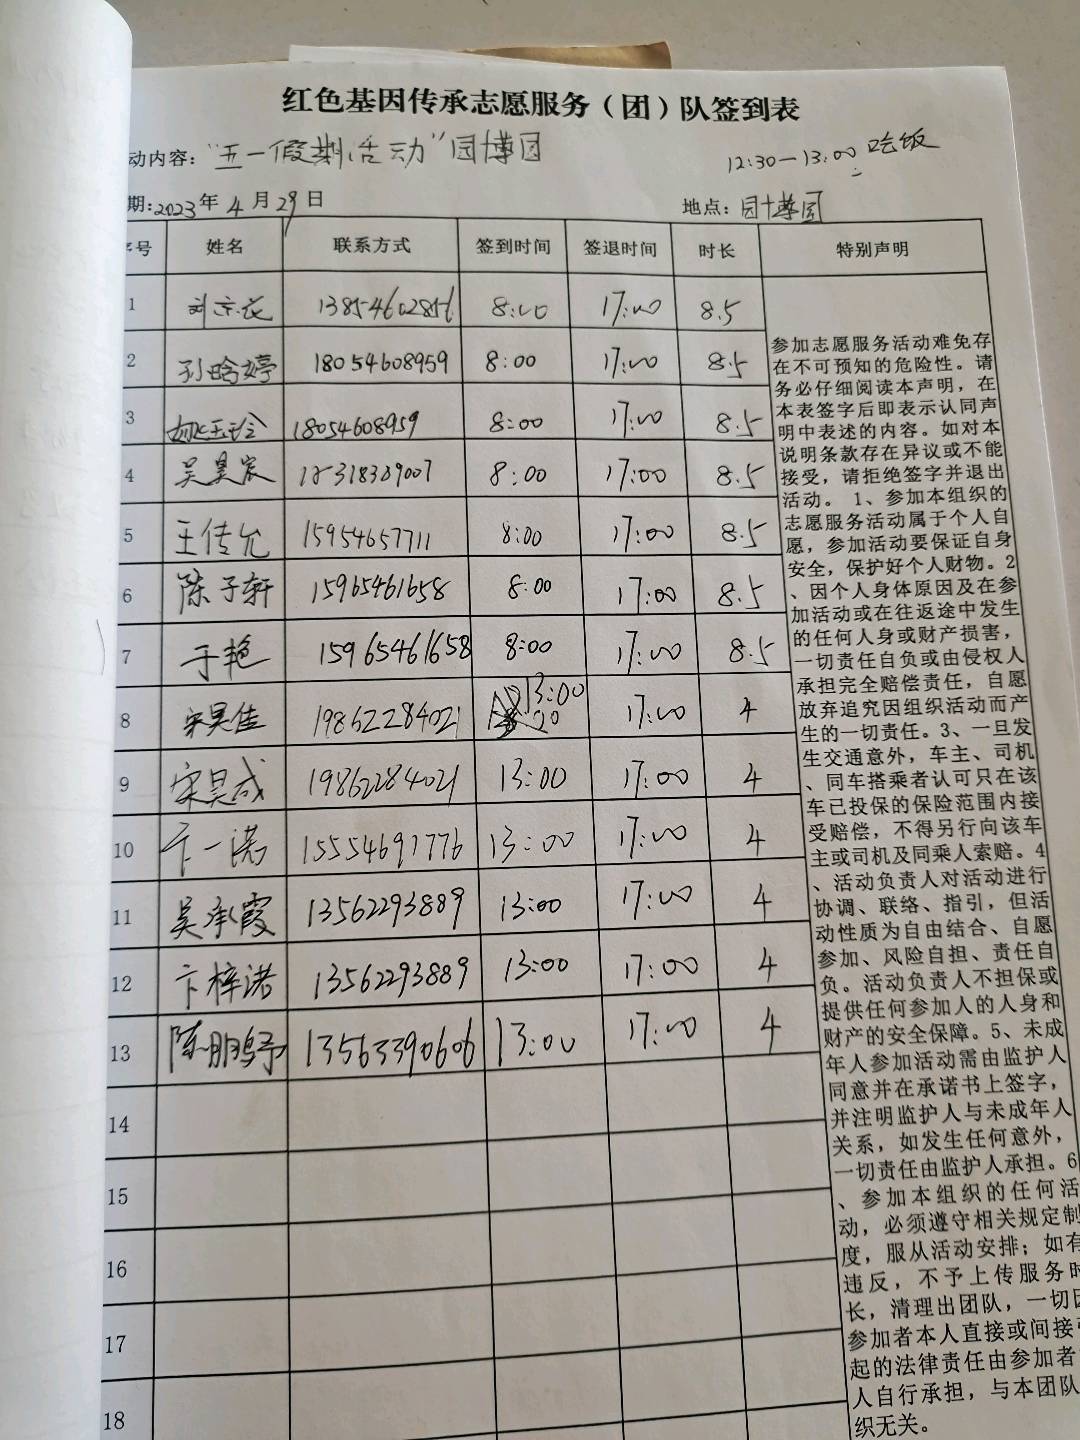 红色基因传承志愿服务（团）队签到表
动内容：“五一假期活动”园博园
12:30—13:00 吃饭
期:2023年4月29日 地点：园博园
序号 姓名 联系方式 签到时间 签退时间 时长 特别声明
1 13854602856 8:00 17:00 8.5
2 孙晗婷 18054608959 8:00 17:00 8.5
3 18054608959 8:00 17:00 8.5
4 吴昊宸 15318339007 8:00 17:00 8.5
5 王传允 15954657711 8:00 17:00 8.5
6 陈子轩 15965461658 8:00 17:00 8.5
7 于艳 15965461658 8:00 17:00 8.5
8 宋昊佳 19862284021 13:00 17:00 4
9 宋昊成 19862284021 13:00 17:00 4
10 卞一诺 15554691776 13:00 17:00 4
11 吴承霞 13562293889 13:00 17:00 4
12 卞梓诺 13562293889 13:00 17:00 4
13 陈鹏予 13563390606 13:00 17:00 4
14
15
16
17
18
参加志愿服务活动难免存
在不可预知的危险性。请
务必仔细阅读本声明，在
本表签字后即表示认同声
明中表述的内容。如对本
说明条款存在异议或不能
接受，请拒绝签字并退出
活动。 1、参加本组织的
志愿服务活动属于个人自
愿，参加活动要保证自身
安全，保护好个人财物。2
、因个人身体原因及在参
加活动或在往返途中发生
的任何人身或财产损害，
一切责任自负或由侵权人
承担完全赔偿责任，自愿
放弃追究因组织活动而产
生的一切责任。3、一旦发
生交通意外，车主、司机
、同车搭乘者认可只在该
车已投保的保险范围内接
受赔偿，不得另行向该车
主或司机及同乘人索赔。4
、活动负责人对活动进行
协调、联络、指引，但活
动性质为自由结合、自愿
参加、风险自担、责任自
负。活动负责人不担保或
提供任何参加人的人身和
财产的安全保障。5、未成
年人参加活动需由监护人
同意并在承诺书上签字，
并注明监护人与未成年人
关系，如发生任何意外，
一切责任由监护人承担。6
、参加本组织的任何活
动，必须遵守相关规定制
度，服从活动安排；如有
违反，不予上传服务时
长，清理出团队，一切因
参加者本人直接或间接引
起的法律责任由参加者
人自行承担，与本团队
织无关。